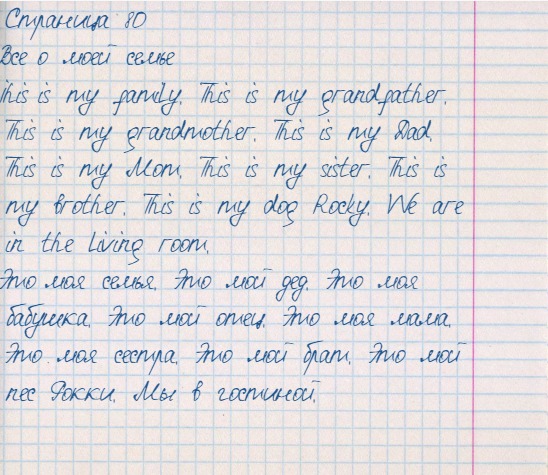 Страница 80
Все о моей семье
This is my family. This is my grandfather.
This is my grandmother. This is my Dad.
This is my Mom. This is my sister. This is
my brother. This is my dog Rocky. We are
in the living room.
Это моя семья. Это мой дед. Это моя
бабушка. Это мой отец. Это моя мама.
Это моя сестра. Это мой брат. Это мой
пес Рокки. Мы в гостиной.